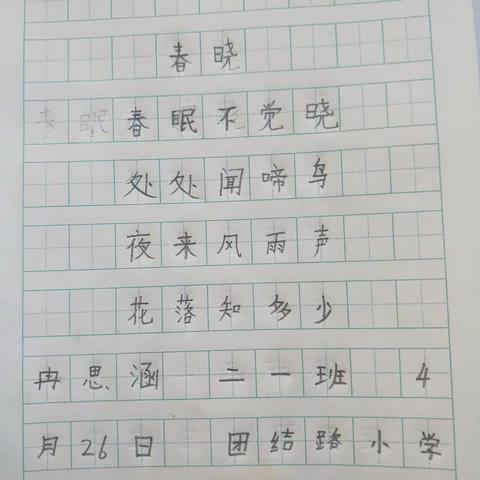 春晓
春眠春眠不觉晓
处处闻啼鸟
夜来风雨声
花落知多少
冉思涵 二一班 4
月26日 团结路小学